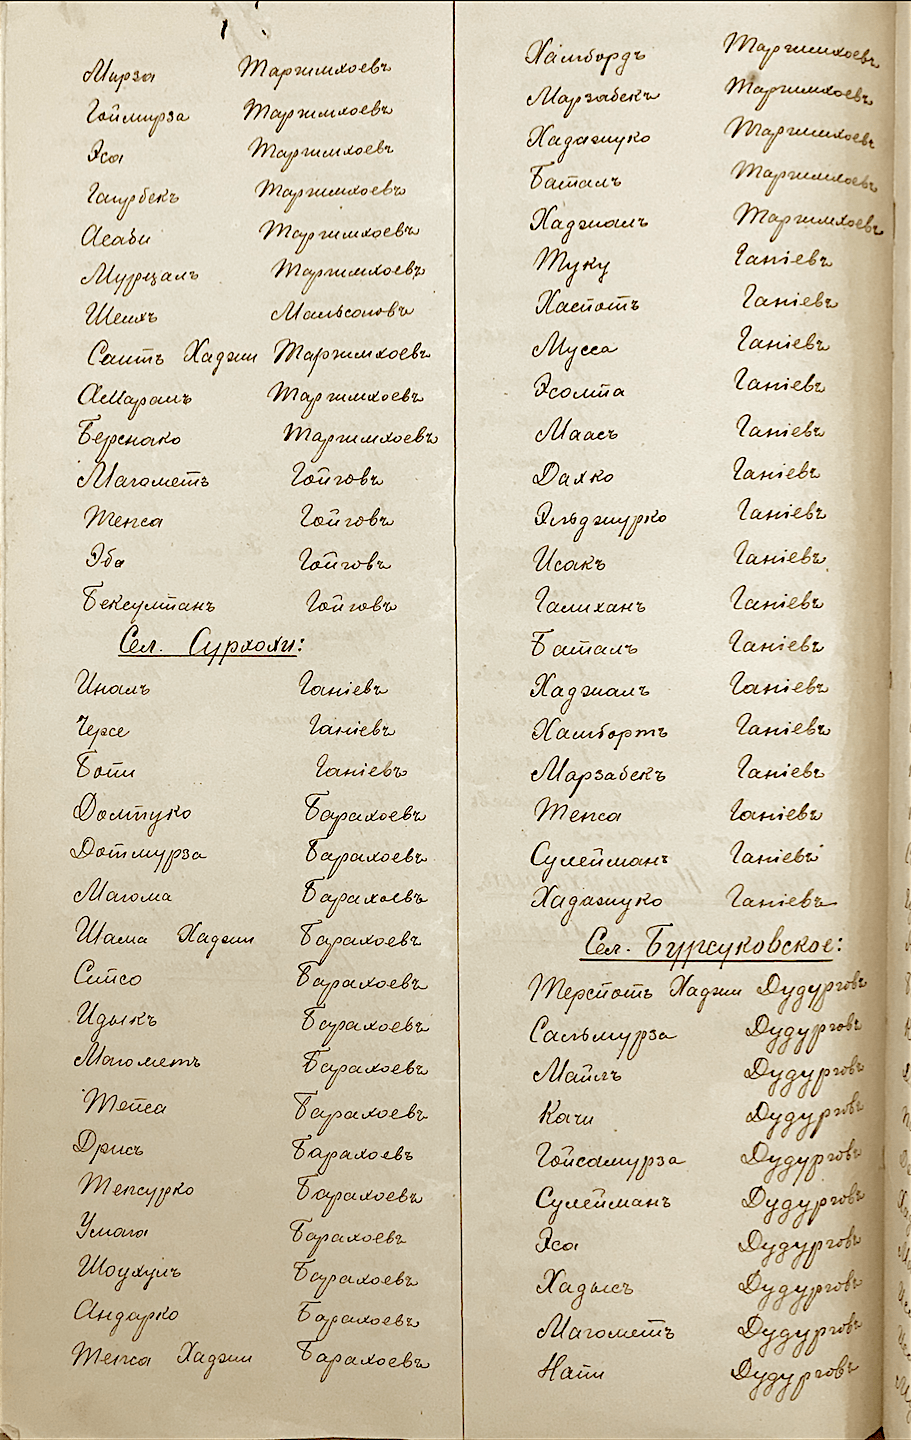 Мирза Таргимхоевъ
Гоймирза Таргимхоевъ
Эса Таргимхоевъ
Гаирбекъ Таргимхоевъ
Асаби Таргимхоевъ
Мурцалъ Таргимхоевъ
Шеихъ Мальсаговъ
Саитъ Хаджи Таргимхоевъ
Таргимхоевъ
Берснако Таргимхоевъ
Магометъ Гойговъ
Тепса Гойговъ
Эба Гойговъ
Бексултанъ Гойговъ
Сел. Сурхохи:
Иналъ Ганіевъ
Черсе Ганіевъ
Боти Ганіевъ
Домтуко Барахоевъ
Дотмурза Барахоевъ
Магома Барахоевъ
Шама Хаджи Барахоевъ
Ситсо Барахоевъ
Идыкъ Барахоевъ
Магометъ Барахоевъ
Тепса Барахоевъ
Дрисъ Барахоевъ
Тепсурко Барахоевъ
Умага Барахоевъ
Шоухулъ Барахоевъ
Андарко Барахоевъ
Тепса Хаджи Барахоевъ
Хамбордъ Таргимхоевъ
Марзабекъ Таргимхоевъ
Хадажуко Таргимхоевъ
Баталъ Таргимхоевъ
Хаджиалъ Таргимхоевъ
Туку Ганіевъ
Хаспотъ Ганіевъ
Мусса Ганіевъ
Эсолта Ганіевъ
Маасъ Ганіевъ
Дахко Ганіевъ
Эльджурко Ганіевъ
Исакъ Ганіевъ
Галиханъ Ганіевъ
Баталъ Ганіевъ
Хаджиалъ Ганіевъ
Хамбортъ Ганіевъ
Марзабекъ Ганіевъ
Тепса Ганіевъ
Сулейманъ Ганіевъ
Хадажуко Ганіевъ
Сел. Бурсуковское:
Терспотъ Хаджи Дудурговъ
Сальмурза Дудурговъ
Маилъ Дудурговъ
Качи Дудурговъ
Гойсамурза Дудурговъ
Сулейманъ Дудурговъ
Эса Дудурговъ
Хадысъ Дудурговъ
Магометъ Дудурговъ
Напи Дудурговъ